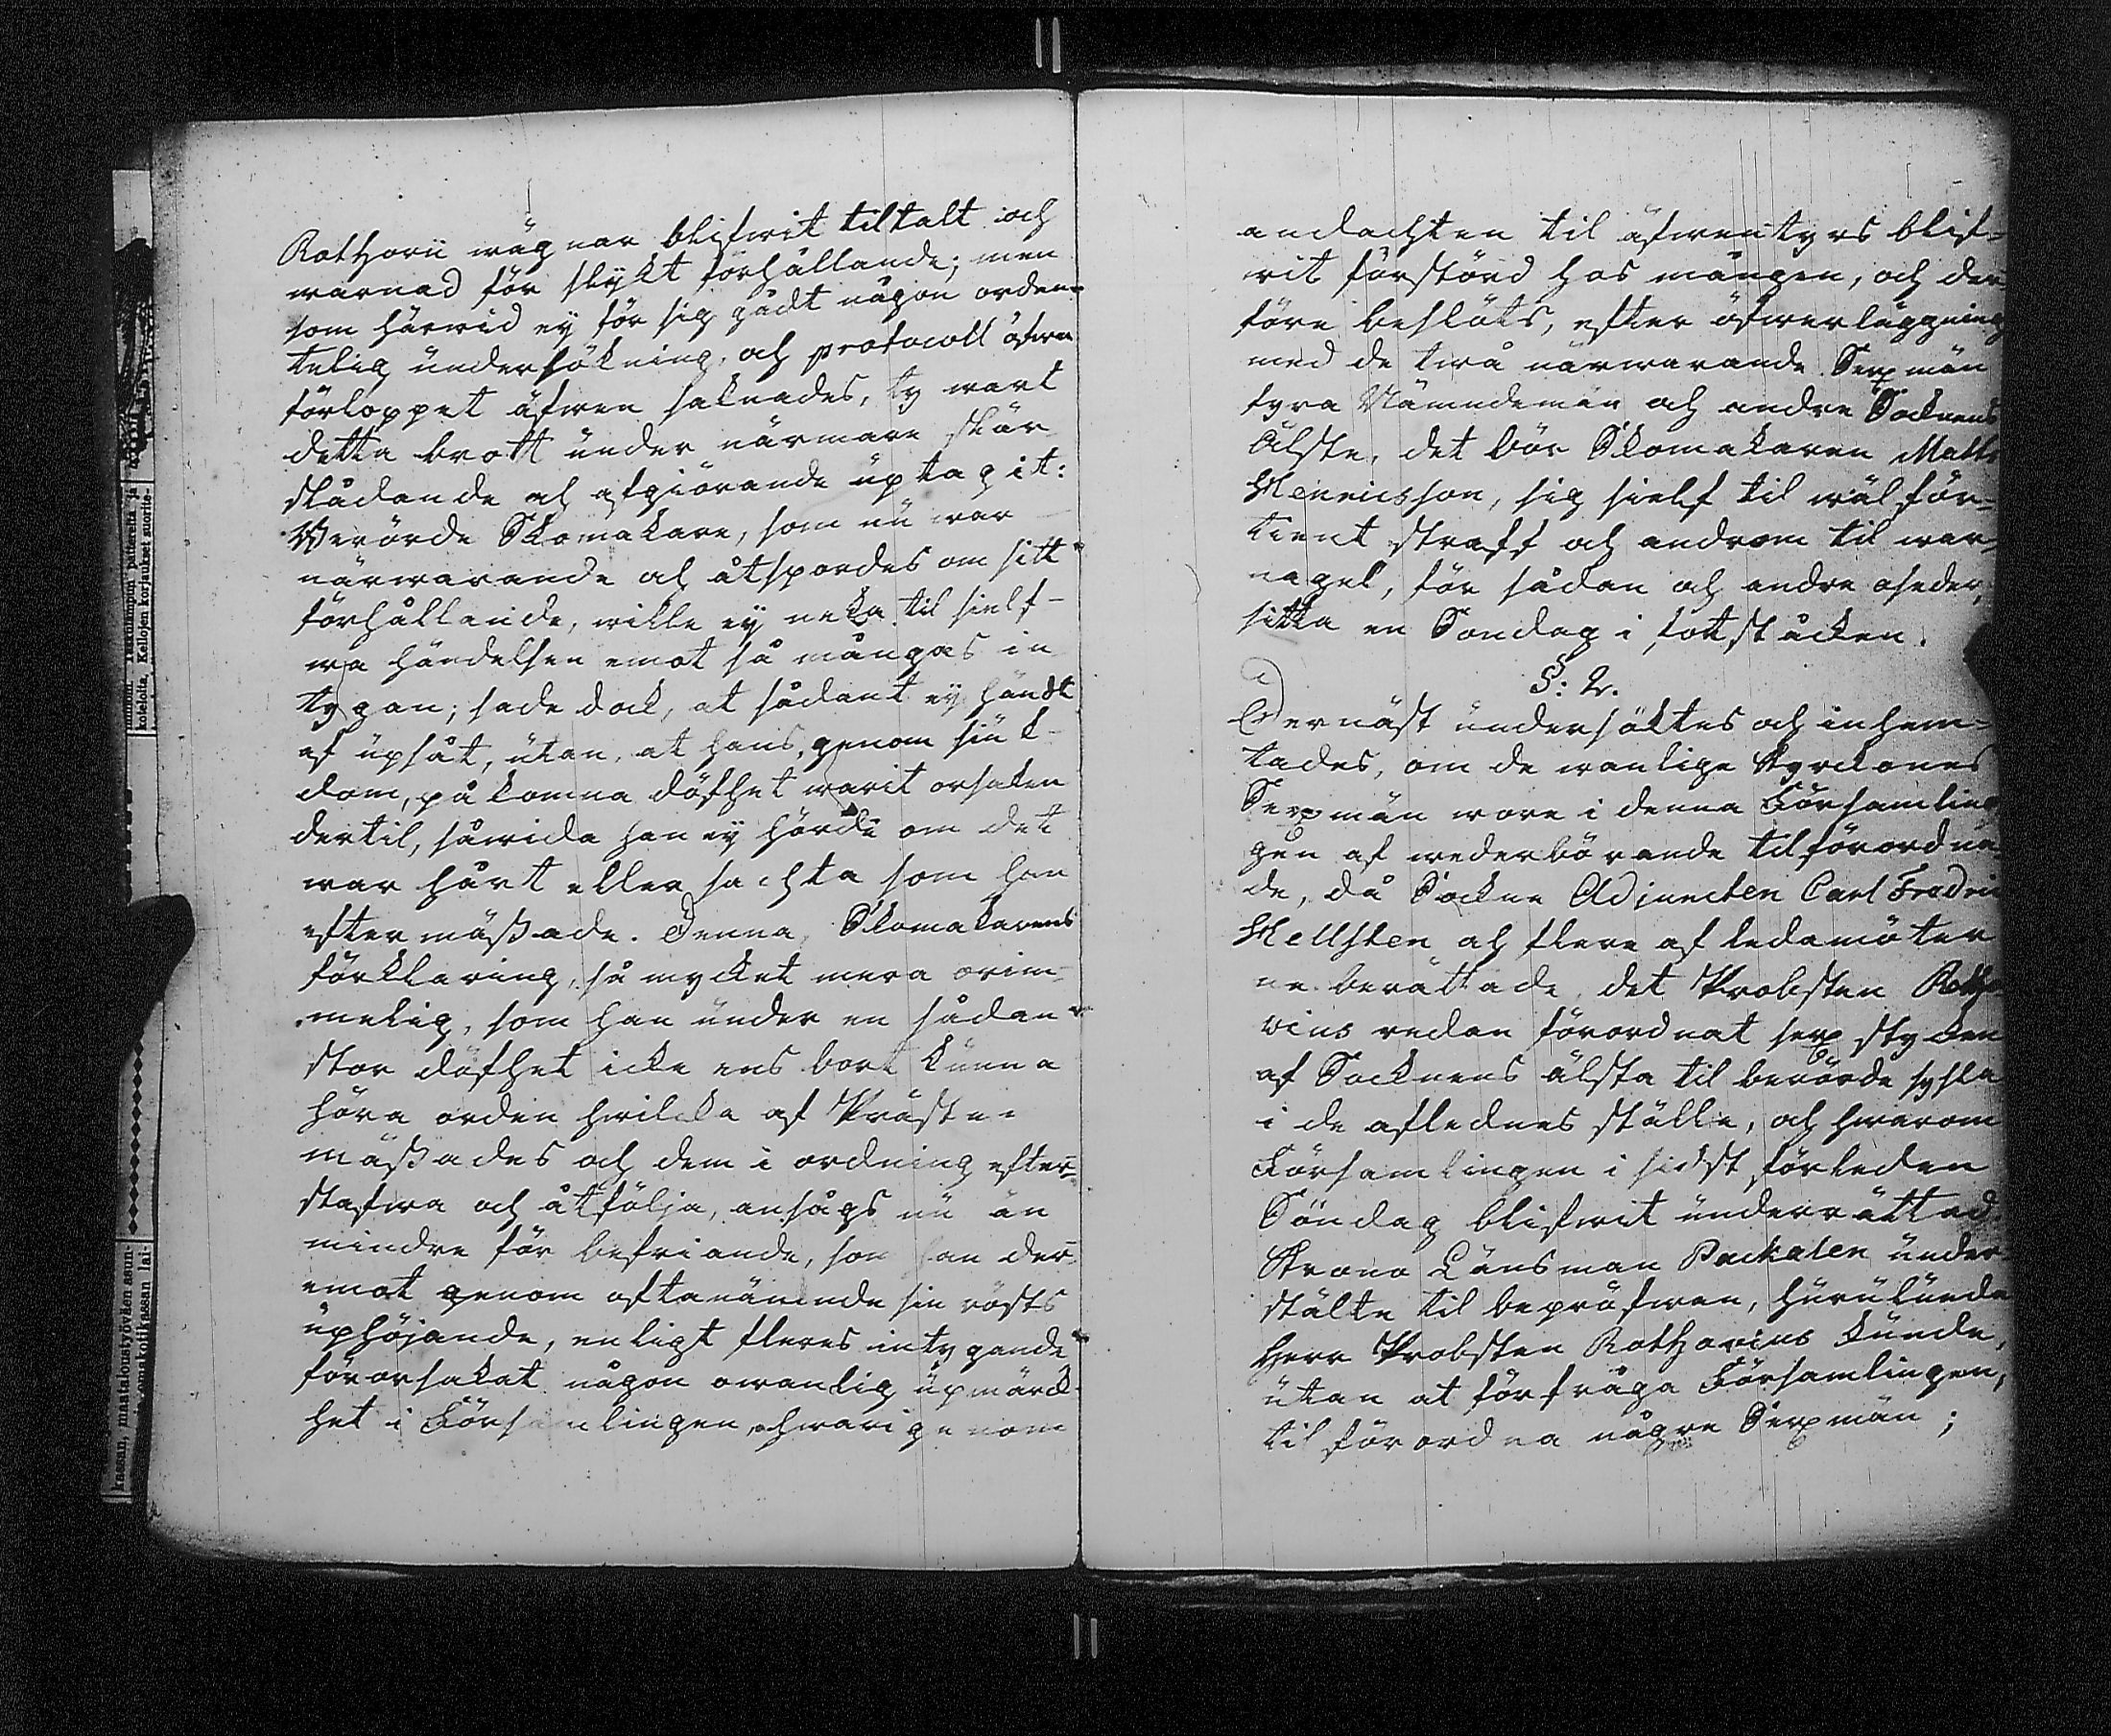 Rothovii wägnar blifwit tiltalt och
warnad för slykt förhållande; men
som härwid ey för sig gådt någon orden-
telig undersökning, och protocoll öfwer
förloppet äfwen saknades, ty wart
detta brott under närmare skär-
skådande och afgiörande uptagit:
Berörde Skomakare, som nu war
närwarande och åtspordes om sitt
förhållande, wille ey neka til sielf-
wa händelsen emot så mångas in
tygan; sade dock, at sådant ey händt
af upsåt, utan, at hans, genom siuk-
dom, påkomna döfhet warit orsaken
dertil, såwida han ey hörde om det
war hårt eller sachta som han
efter mäßade. Denna Skomakarens
förklaring, så mycket mera orim-
melig, som han under en sådan
stor döfhet icke ens bort kunna
höra orden hwilcka af Präste-
mäßades och dem i ordning efter-
stafwa och åtfölja, ansågs nu än
mindre för befriande, som han der-
emot genom oftanämnde sin rösts
uphöjande, enligt fleres intygande
förorsakat någon owanlig upmärck-
het i Församlingen, hwarigenom
andachten til äfwentyrs blif-
wit förstörd hos mången, och der
före beslöts, efter öfwerläggning
med de twå närwarande Sexmän
fyra Nämndemän och andre Socknens
Älste, det bör Skomakaren Matts
Henricsson, sig sielf til wälför-
tient straff och androm til war-
nagel, för sådan och andre oseder,
sitta en Söndag i fotståcken.
§: 2.
Dernäst undersöktes och inhem-
tades, om de wanlige Kyrckones
Sexmän wore i denna Församlin
gen af wederbörande tilförordna
de, då Sockne Adjuncten Carl Fredric
Hellsten och flere af ledamöter
ne berättade, det Probsten Rotho
vius redan förordnat sex stycken
af Socknens älsta til berörde sysla
i de aflednes ställe, och hwarom
Församlingen i sidst förleden
Söndag blifwit underrättad.
Krono Länsman Packalen under-
stälte til bepröfwan, huruledes
Herr Probsten Rothovius kunde,
utan at förfråga Församlingen,
til förordna någre Sexmän;
kassan, maataloustyöväen asun-
kotelolta, Kellojen korjaukset suorite-